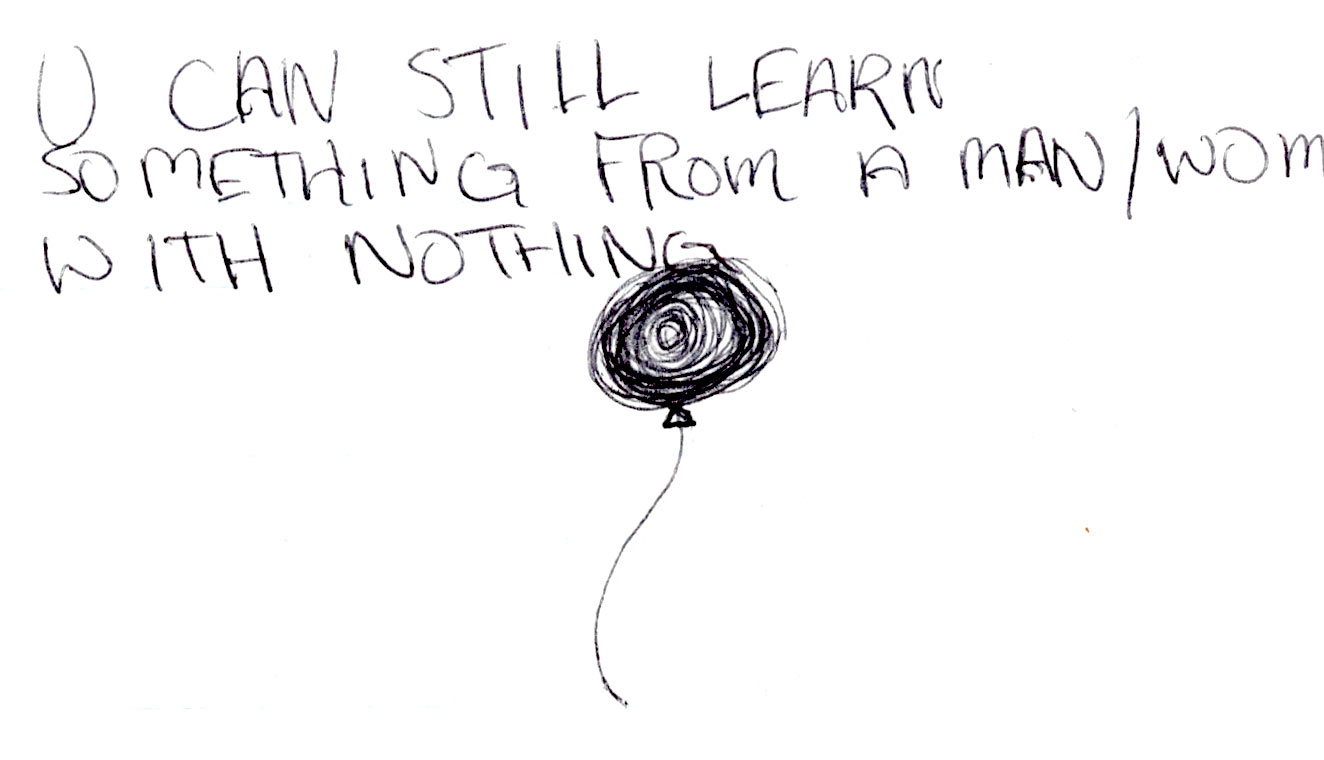 U CAN STILL LEARN
SOMETHING FROM A MAN/WOM
WITH NOTHING